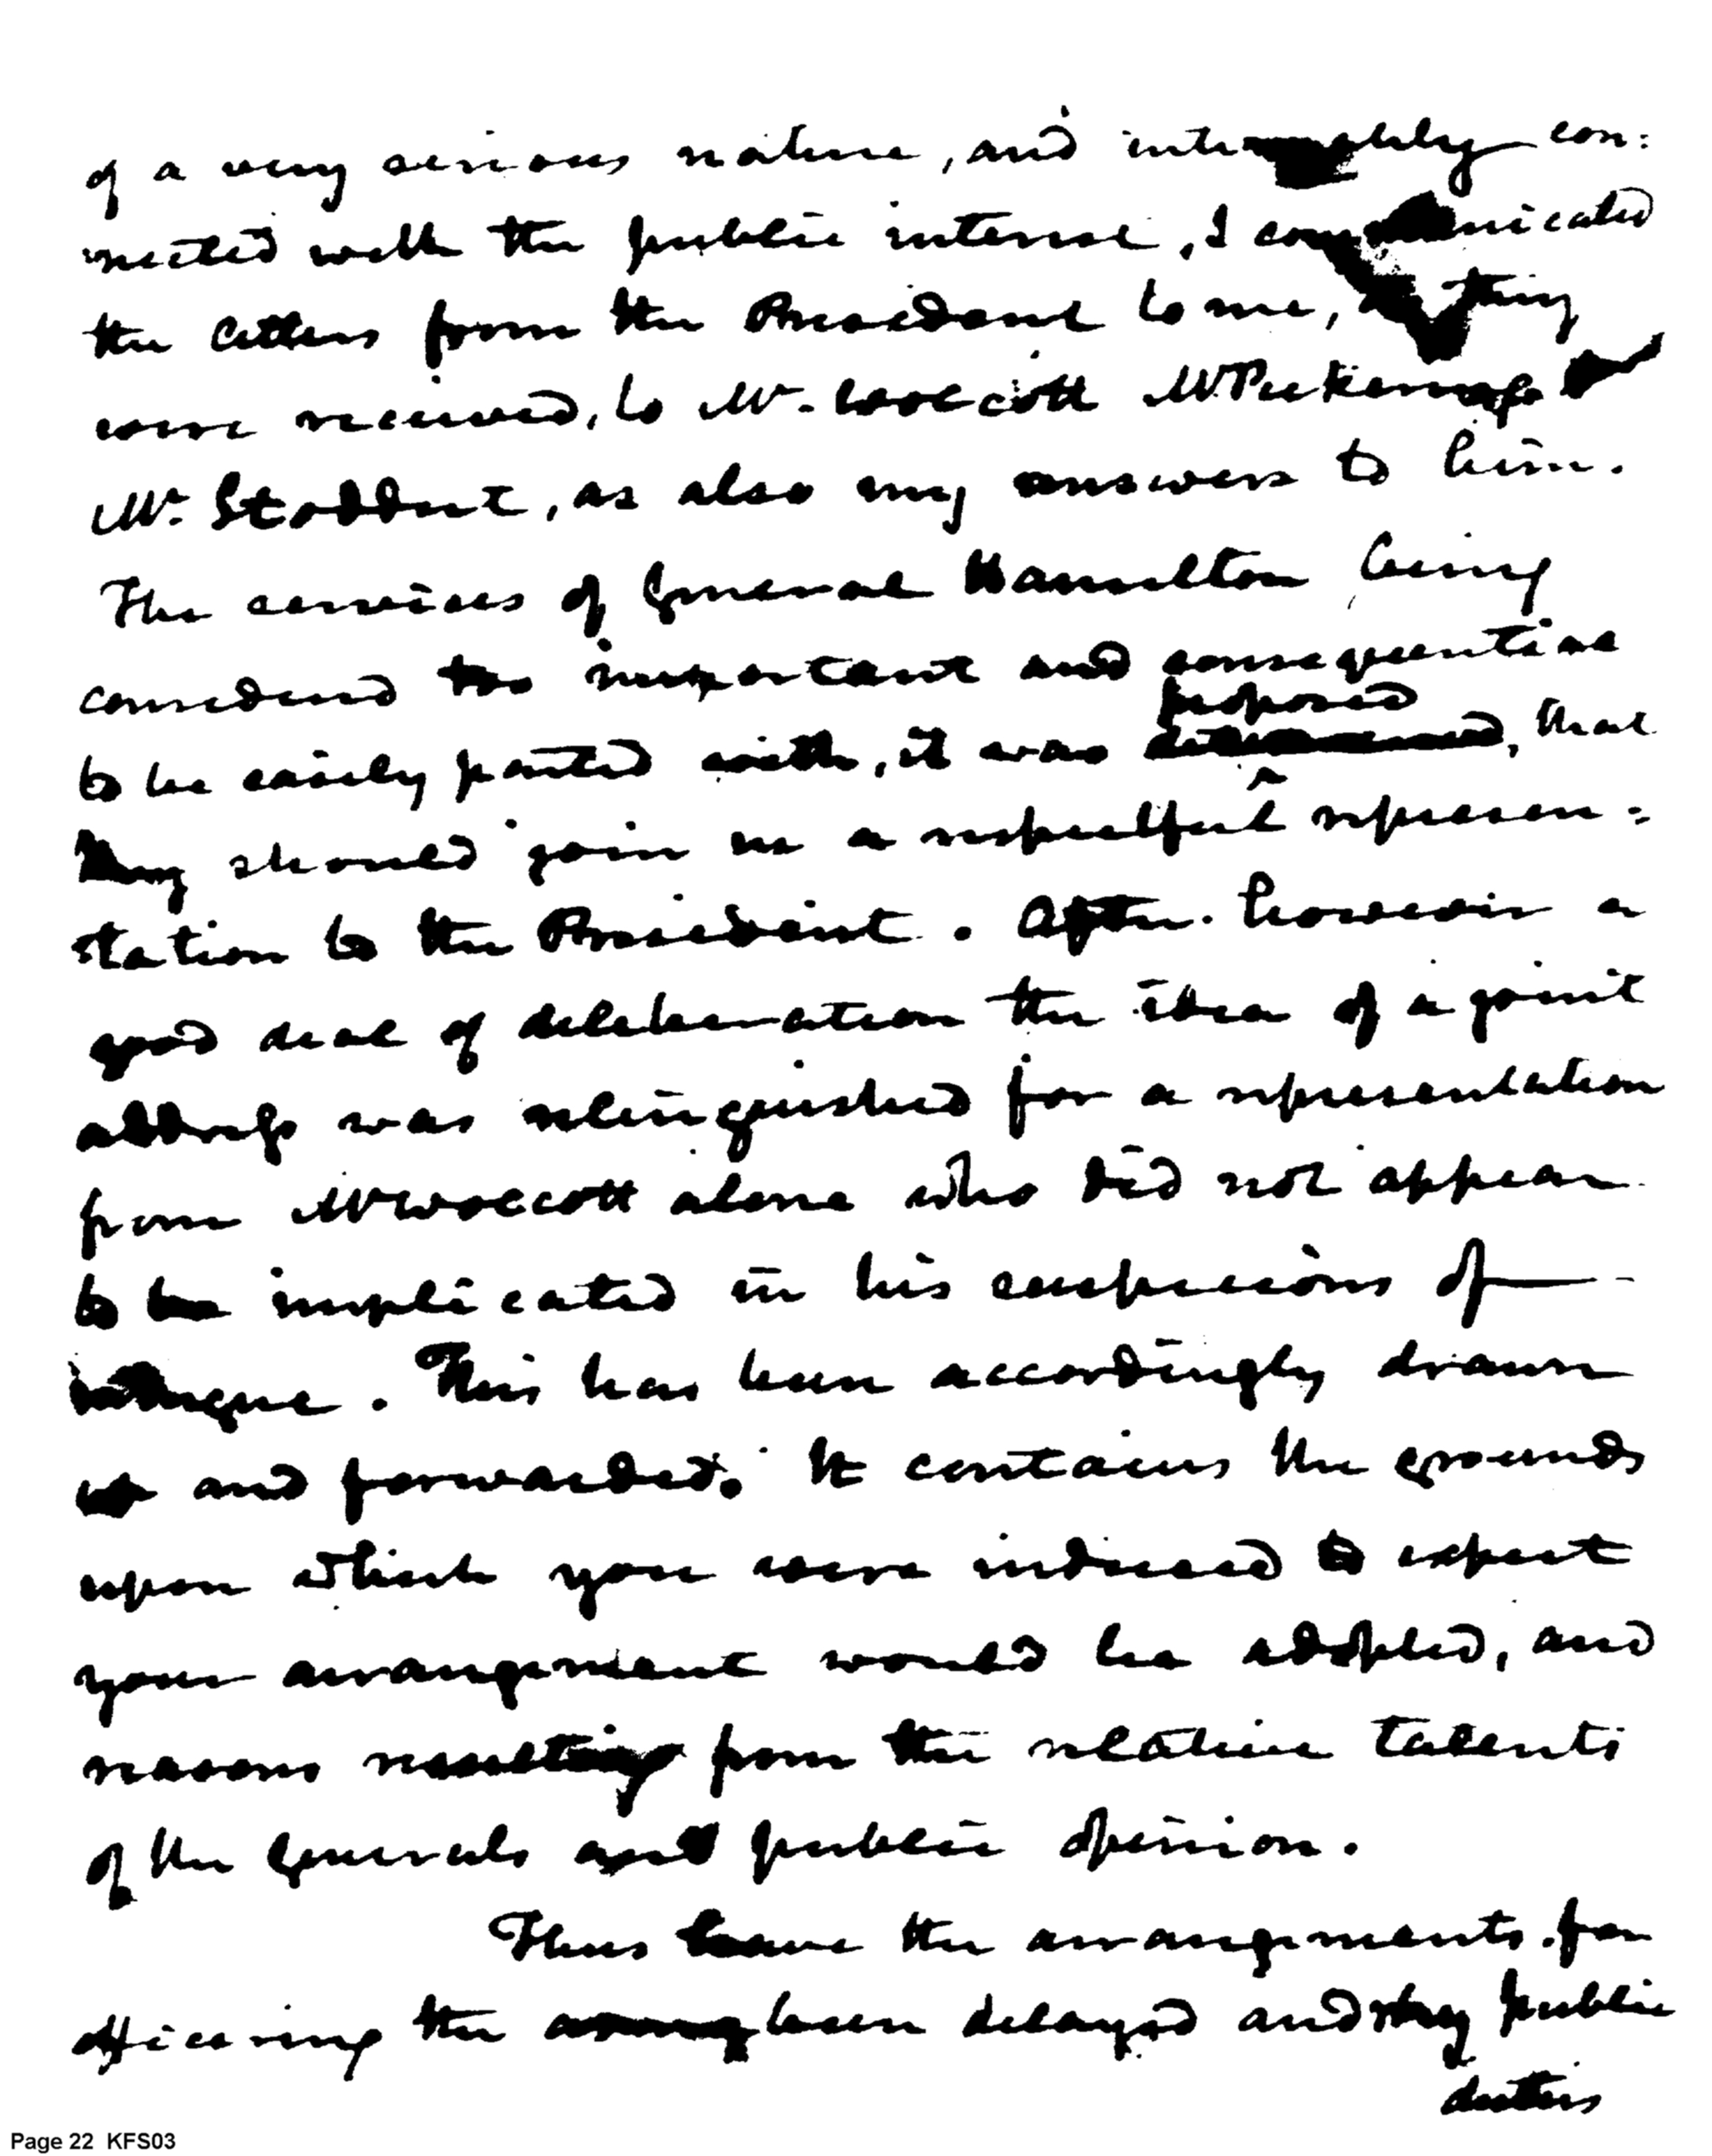 of a very serious nature, and intimately con:
nected with the public interest, I communicated
the letters from the President to me, as they
were received, to Mr. Wolcott Mr Pickering &
Mr. Stoddert, as also my answers to him.
The services of General Hamilton being
considered too important and consequential
proposed
to be easily parted with, it was determined, that
they should join in a respectful represen:
tation to the President. After. however a
good deal of deliberation the idea of a joint
address was relinquished for a representation
from Mr Wolcott alone who did not appear
to be implicated in his suspicions of
intrigue. This has been accordingly drawn
up and forwarded. It contains the grounds
upon which you were induced to expect
your arrangement would be adopted, and
reasons resulting from the relative talents
of the Generals and public opinion.
Thus have the arrangements for
officering the army been delayed and my public
duties
Page 22 KFS03